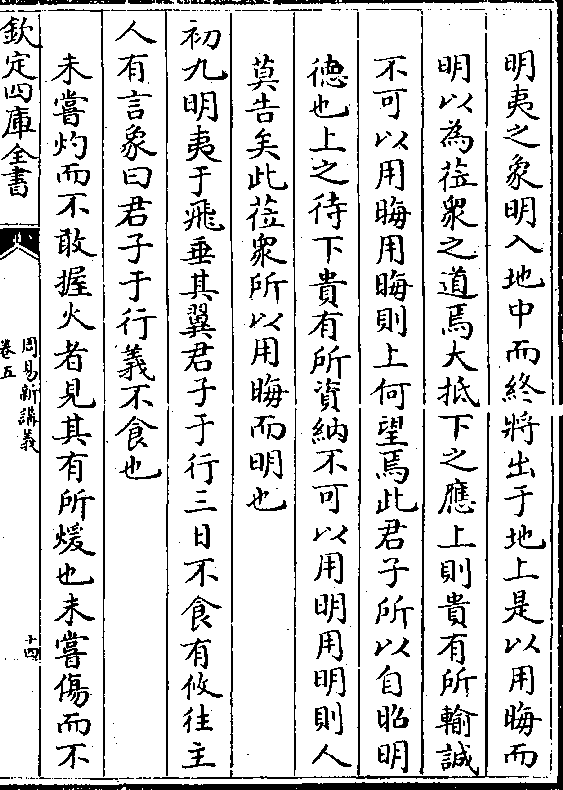 明夷之象明入地中而終將出于地上是以用晦而
明以為莅衆之道焉大抵下之應上則貴有所輸誠
不可以用晦用晦則上何望焉此君子所以自昭明
德也上之待下貴有所資納不可以用明用明則人
莫告矣此莅衆所以用晦而明也
初九明夷于飛垂其翼君子于行三日不食有攸往主
人有言象曰君子于行義不食也
未嘗灼而不敢握火者見其有所煖也未嘗傷而不
欽定四庫全書
周易新講義
卷五
十四